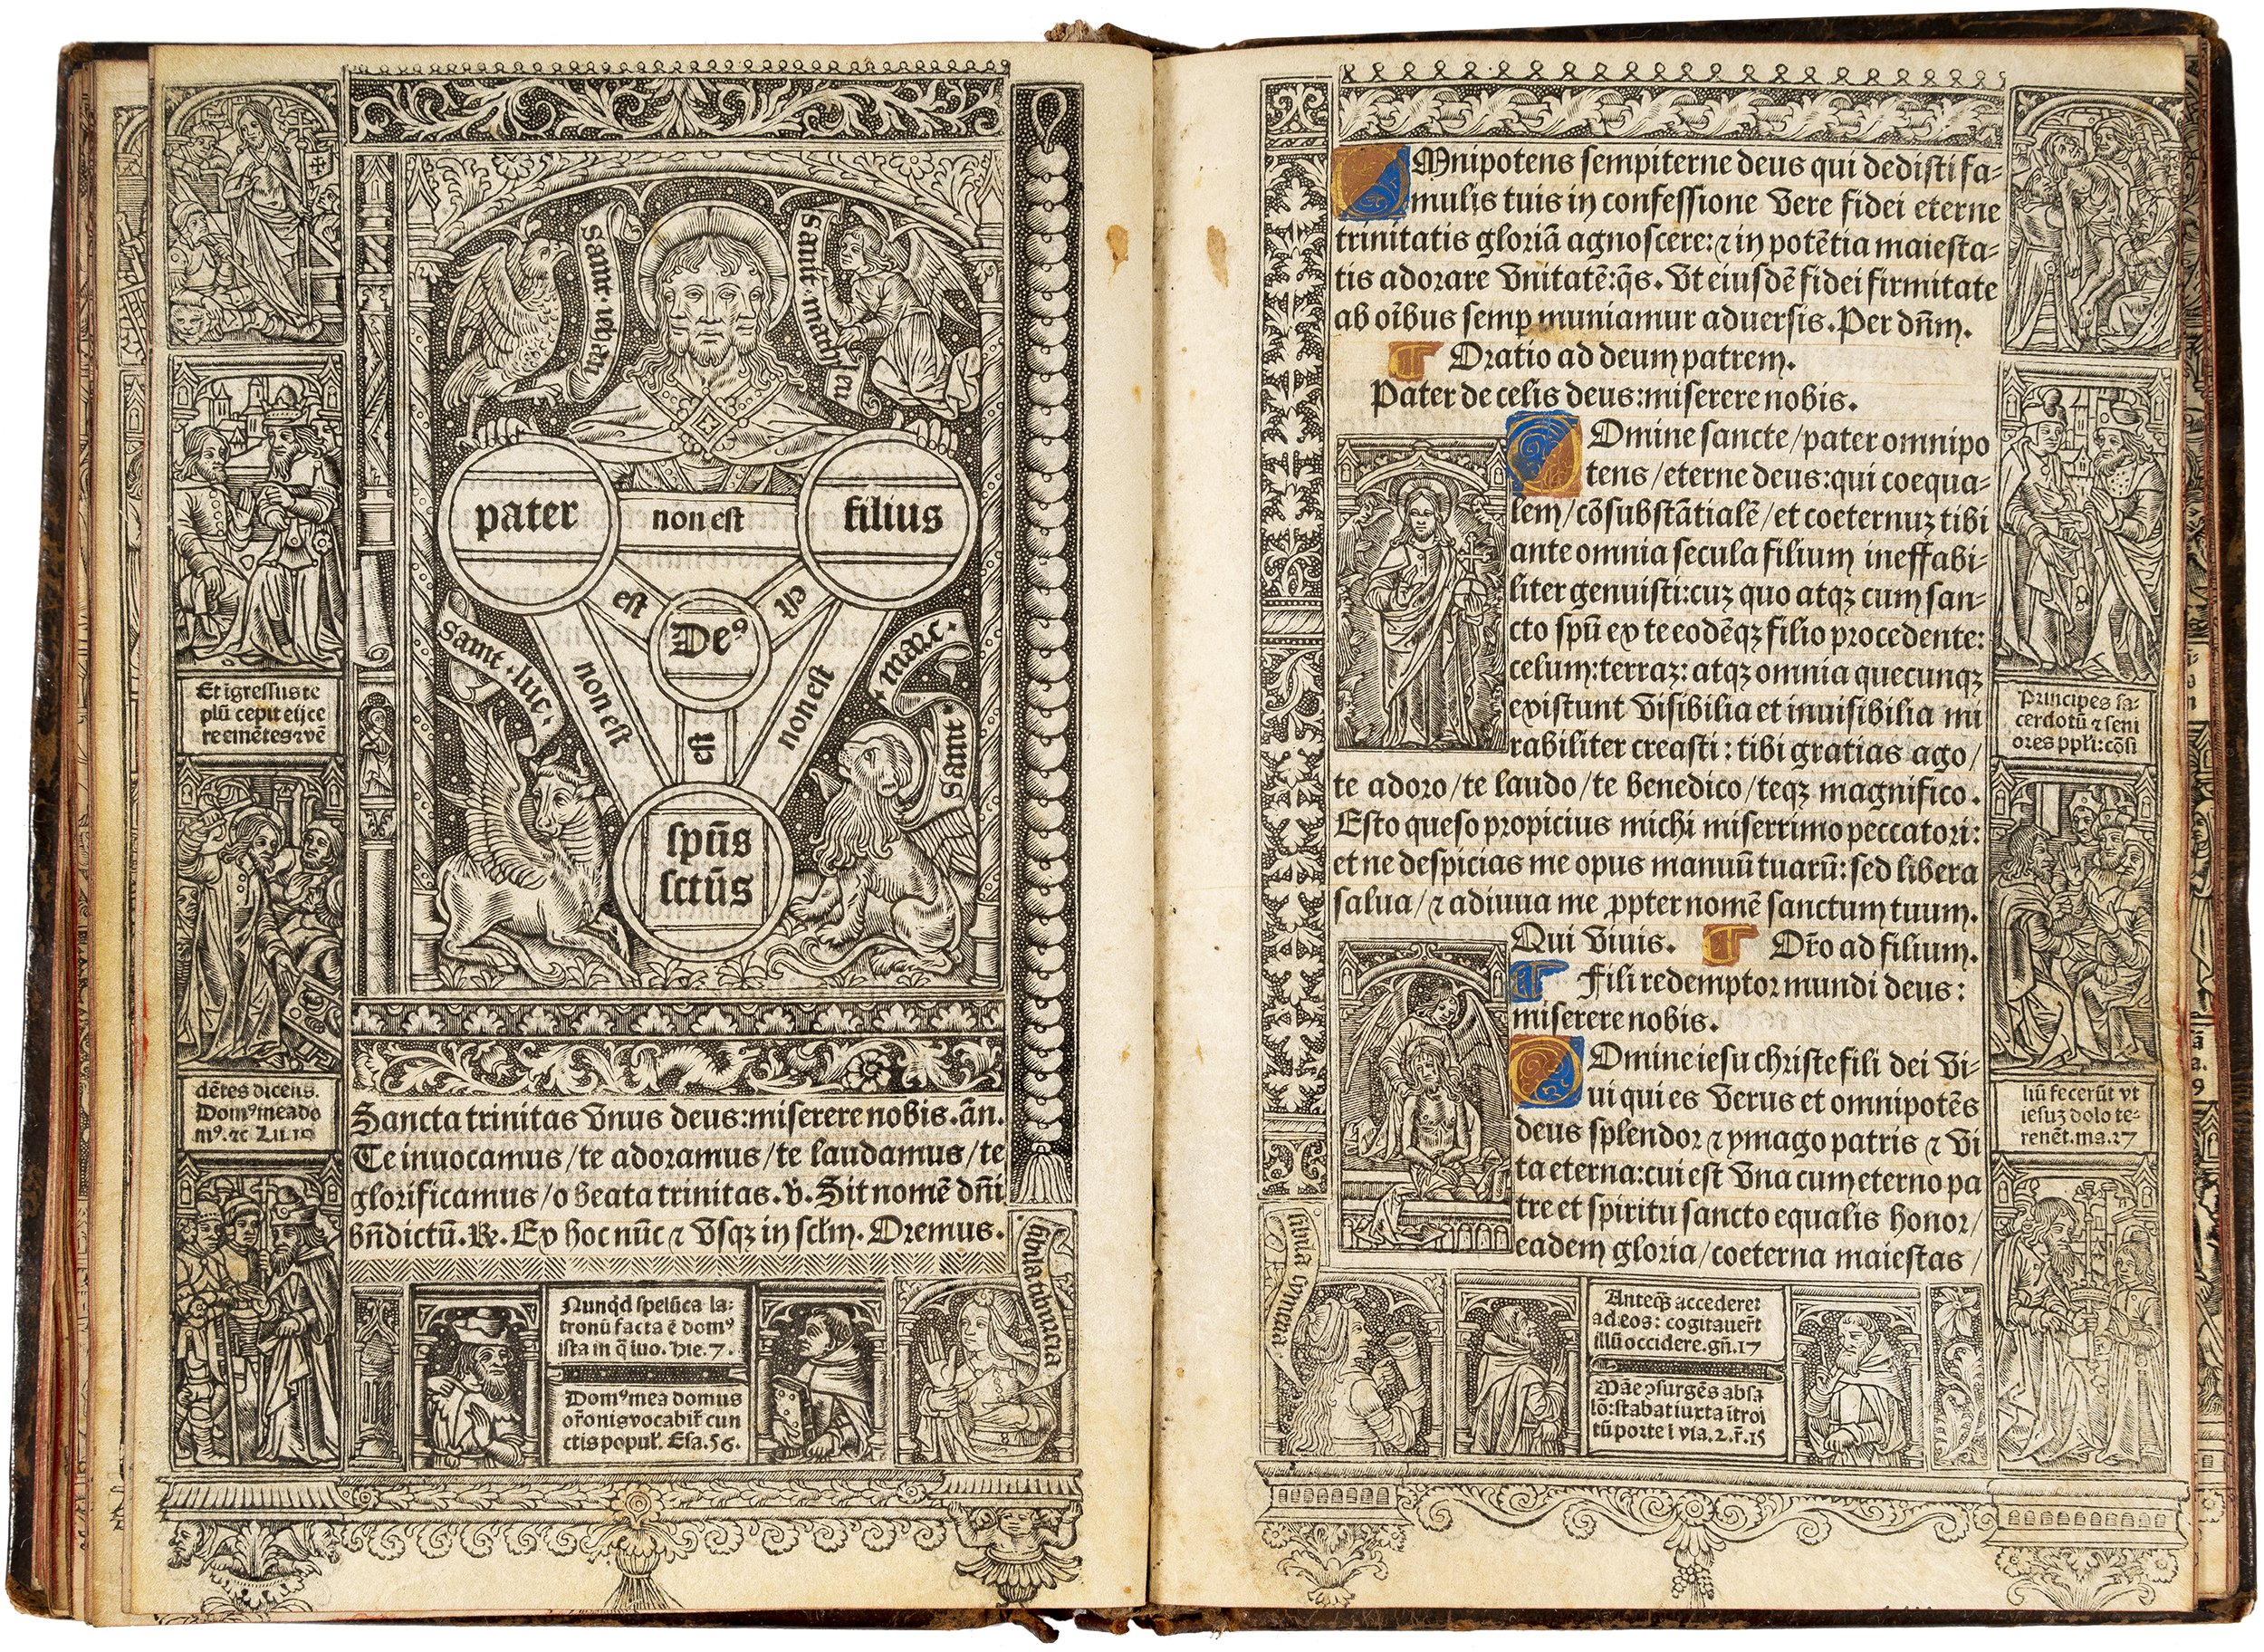 sanct · marc ·
sanct · luc ·
pater
non est
filius
est
est
Deꝰ
non est
est
non est
spūs
sctūs
Et īgressus te
plū cepit eijce
re emētes ⁊ vē
dētes dicens.
Domꝰ mea do
mꝰ. ⁊c Lu. 19
Sancta trinitas vnus deus: miserere nobis. ān.
Te inuocamus / te adoramus / te laudamus / te
glorificamus / o beata trinitas. v̄. Sit nomē dn̄i
bn̄dictū. ℟. Ex hoc nūc ⁊ vsqꝫ in sclm̄. Oremus.
Nunqd speluca la⸗
tronū facta ē domꝰ
ista in q̄ iuo. hie. 7.
Domꝰ mea domus
or̄onis vocabit̄ cun
ctis popul̄. Esa. 56.
Mnipotens sempiterne deus qui dedisti fa⸗
mulis tuis in confessione vere fidei eterne
trinitatis gloriā agnoscere: ⁊ in potētia maiesta⸗
tis adorare vnitatē: q̄s. Vt eiusdē fidei firmitate
ab oībus semꝑ muniamur aduersis. Per dn̄m.
Oratio ad deum patrem.
Pater de celis deus: miserere nobis.
Omine sancte / pater omnipo
tens / eterne deus: qui coequa⸗
lem / cōsubstātialē / et coeternuꝫ tibi
ante omnia secula filium ineffabi⸗
liter genuisti: cuꝫ quo atqꝫ cum san⸗
cto spū ex te eodēqꝫ filio procedente:
celum: terraꝫ: atqꝫ omnia quecunqꝫ
existunt visibilia et inuisibilia mi
rabiliter creasti: tibi gratias ago /
te adoro / te laudo / te benedico / teqꝫ magnifico.
Esto queso propicius michi miserrimo peccatori:
et ne despicias me opus manuū tuarū: sed libera
salua / ⁊ adiuua me ꝓpter nomē sanctum tuum.
Qui viuis. Or̄o ad filium.
Fili redemptor mundi deus:
miserere nobis.
Omine iesu christe fili dei vi⸗
ui qui es verus et omnipotēs
deus splendor ⁊ ymago patris ⁊ vi
ta eterna: cui est vna cum eterno pa
tre et spiritu sancto equalis honor /
eadem gloria / coeterna maiestas /
Principes sa⸗
cerdotū ⁊ seni
ores ppl̄i: cōsi
liū fecerūt vt
iesuꝫ dolo te⸗
renēt. ma. 27
Anteqꝫ accederet
ad eos: cogitauer̄t
illū occidere. gn̄. 37
Māe ꝯsurgēs absa
lō: stabat iuxta ītroi
tū porte ī via. 2. r̄. 15